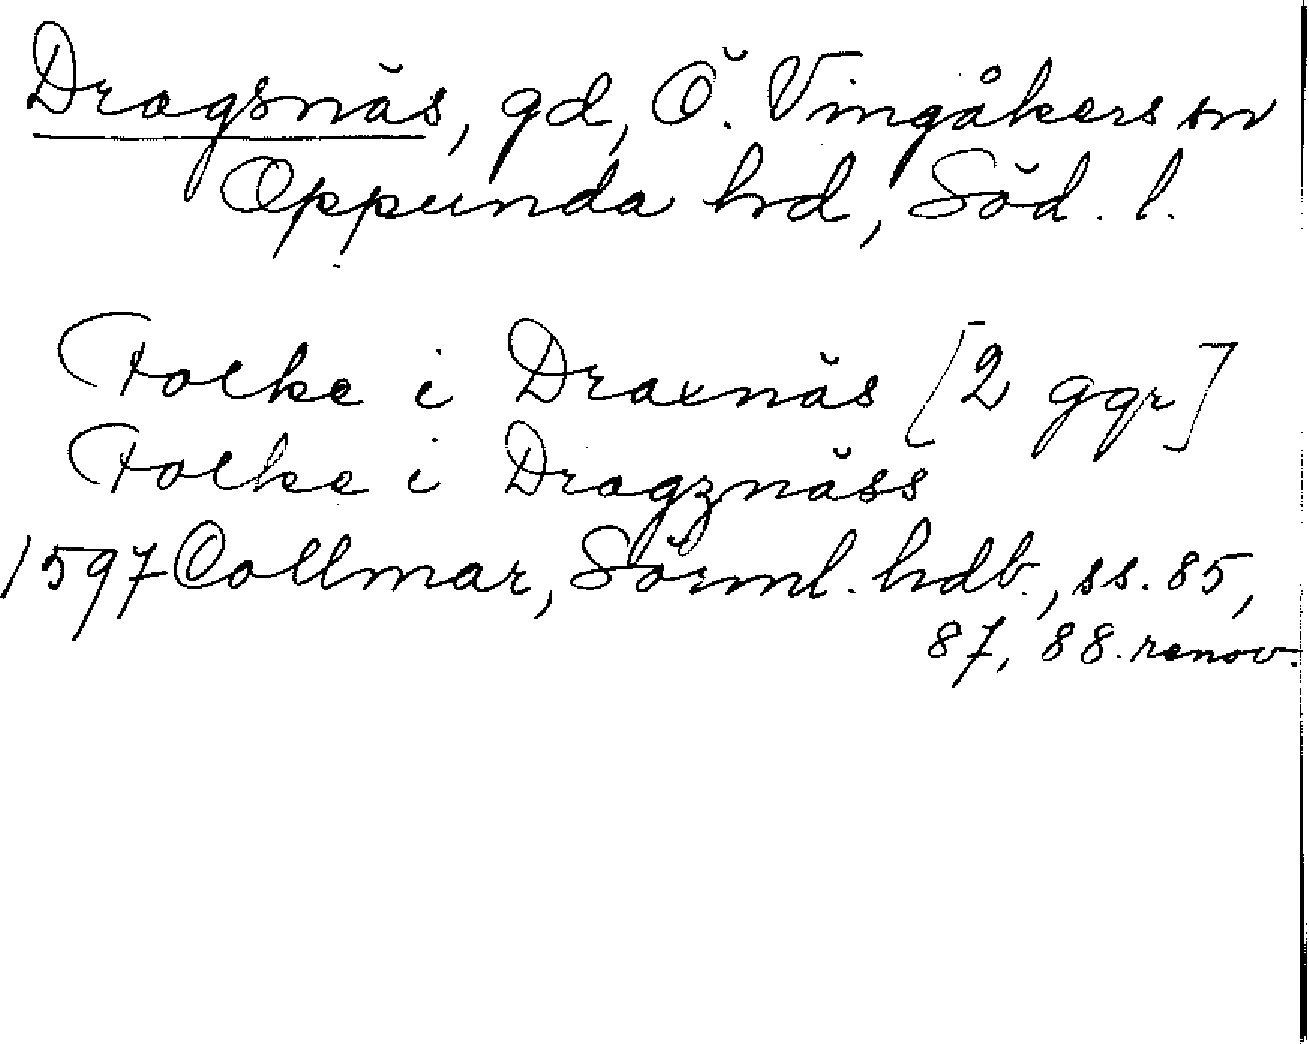 Dragsnäs, gd, Ö. Vingåkers sn
Oppunda hd, Söd. l.
Folke i Draxnäs [2 ggr]
Folke i Dragznäss
1597 Collmar, Sörml. hdb., ss. 85,
87, 88. renov.